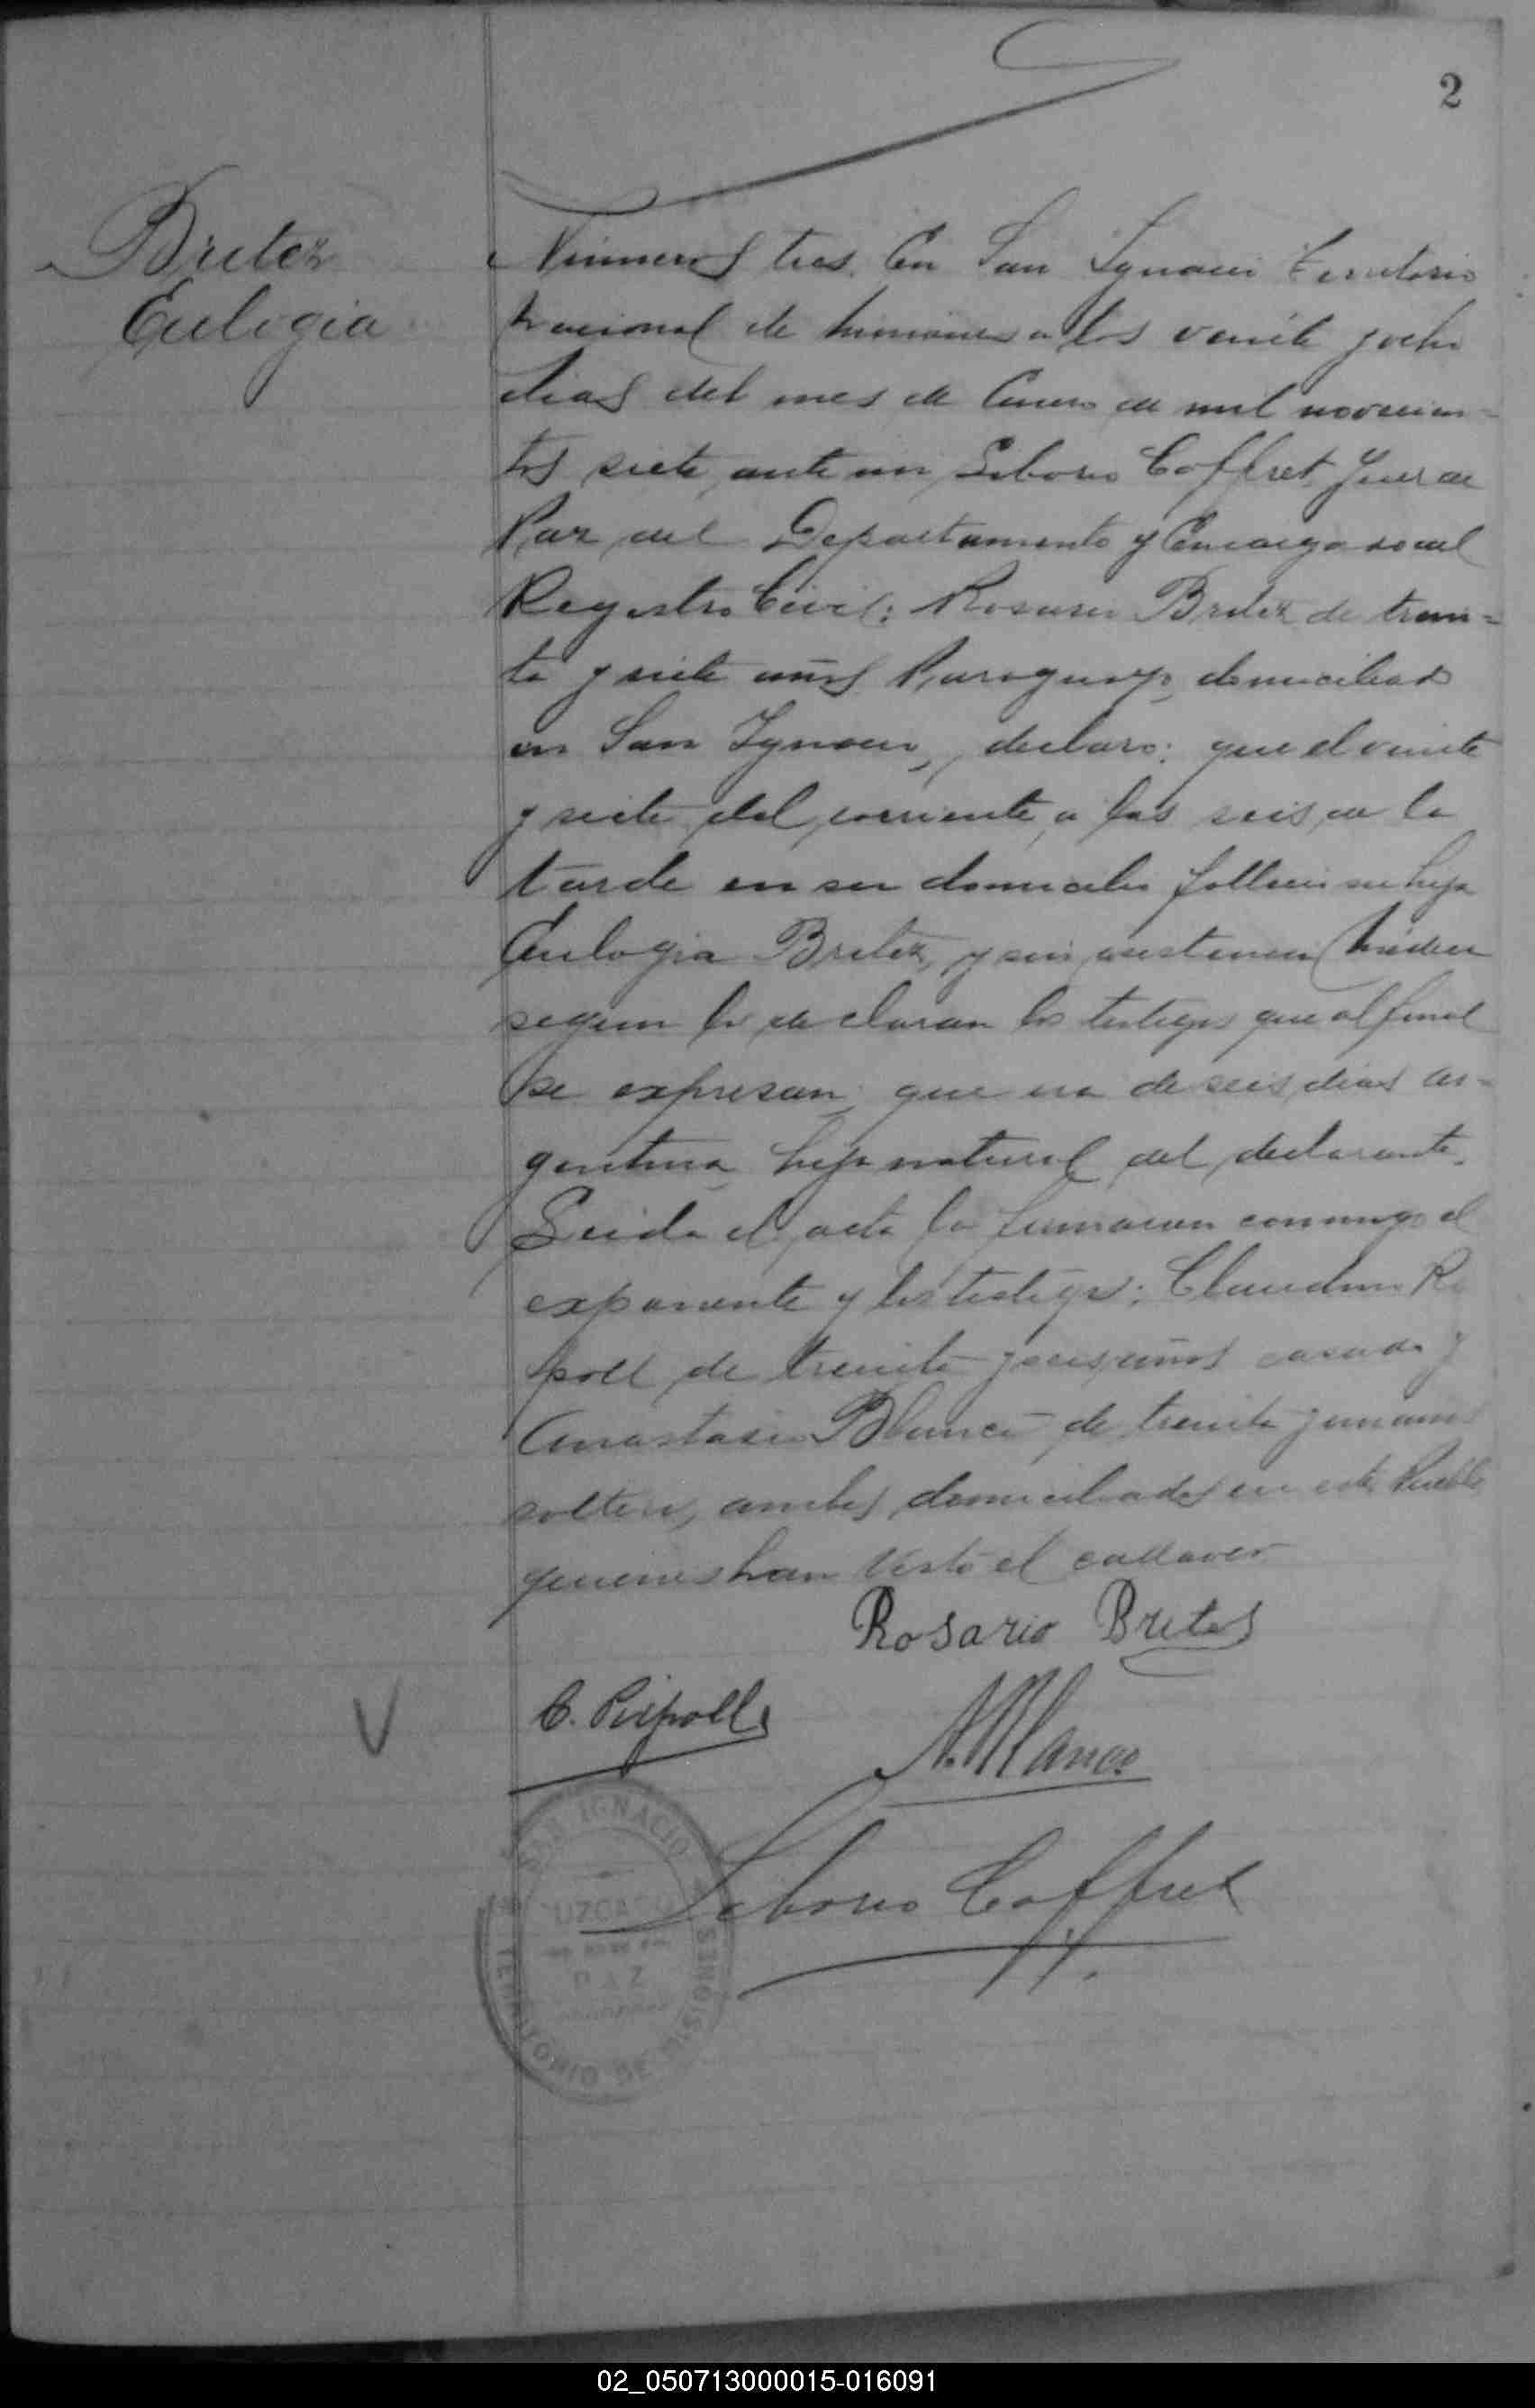 2
Britez
Eulogia
Número tres. En San Ignacio Territorio
Nacional de Misiones a los veinte y ocho
dias del mes de Enero de mil novecien=
tos siete, ante mi Liborio Coffret Juez de
Paz del Departamento y Encargado del
Registro Civil: Rosario Britez de trein=
ta y siete años Paraguayo, domiciliado
en San Ignacio, declaro: que el veinte
y siete del corriente a las seis de la
tarde en su domicilio falleció su hija
Eulogia Britez, y sin asistencia Médica
segun lo declaran los testigos que al final
se expresan; que era de seis dias ar-
gentina hija natural del declarante.
Leida el acta la firmaron conmigo el
exponente y los testigos: Claudino Ri
poll de treinta y seis años casado y
Anastasio Blanco de treinta y un años
soltero, ambos domiciliados en este Pueblo
quienes han visto el cadaver
Rosario Brites
C. Ripoll
A. Blanco
Liborio Coffret
SAN IGNACIO
JUZGADO
DE
PAZ
TERRITORIO DE MISIONES
02_050713000015-016091